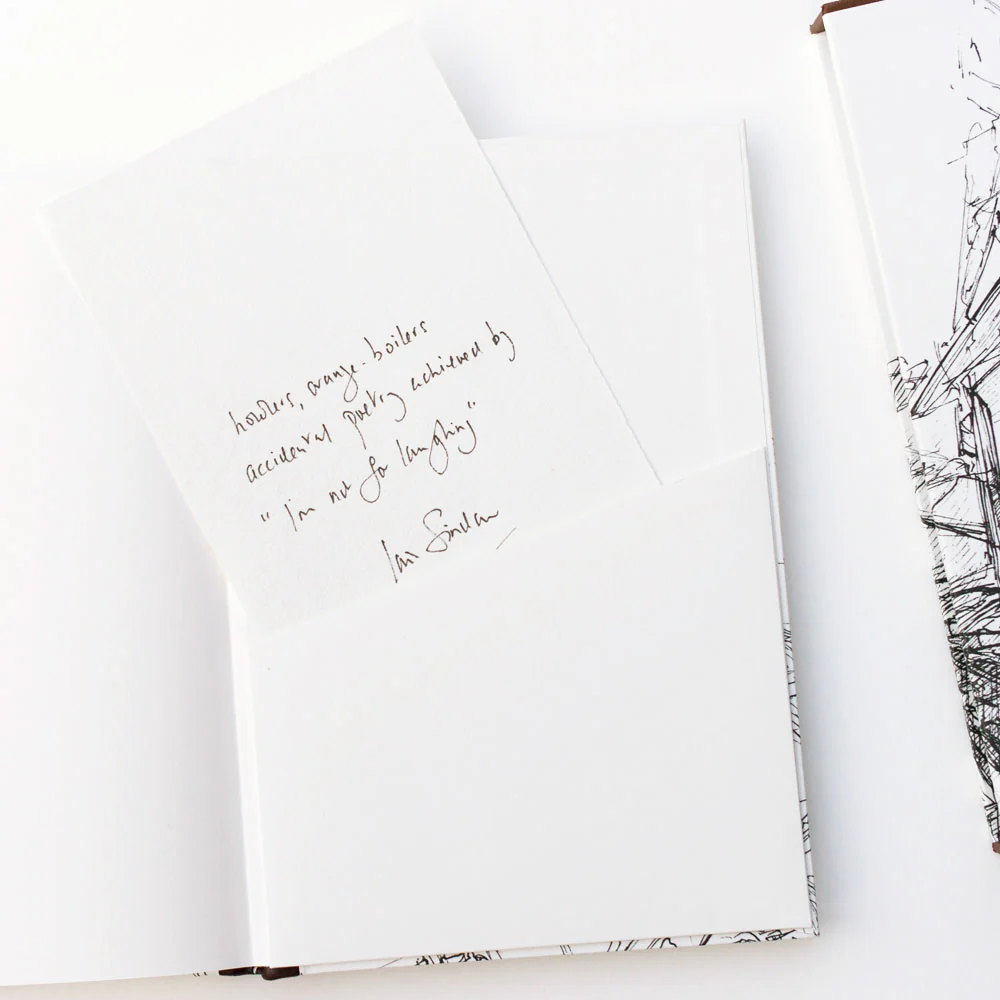 howlers, orange-boilers
accidental poetry achieved by
"I'm not for laughing"
Iain Sinclair